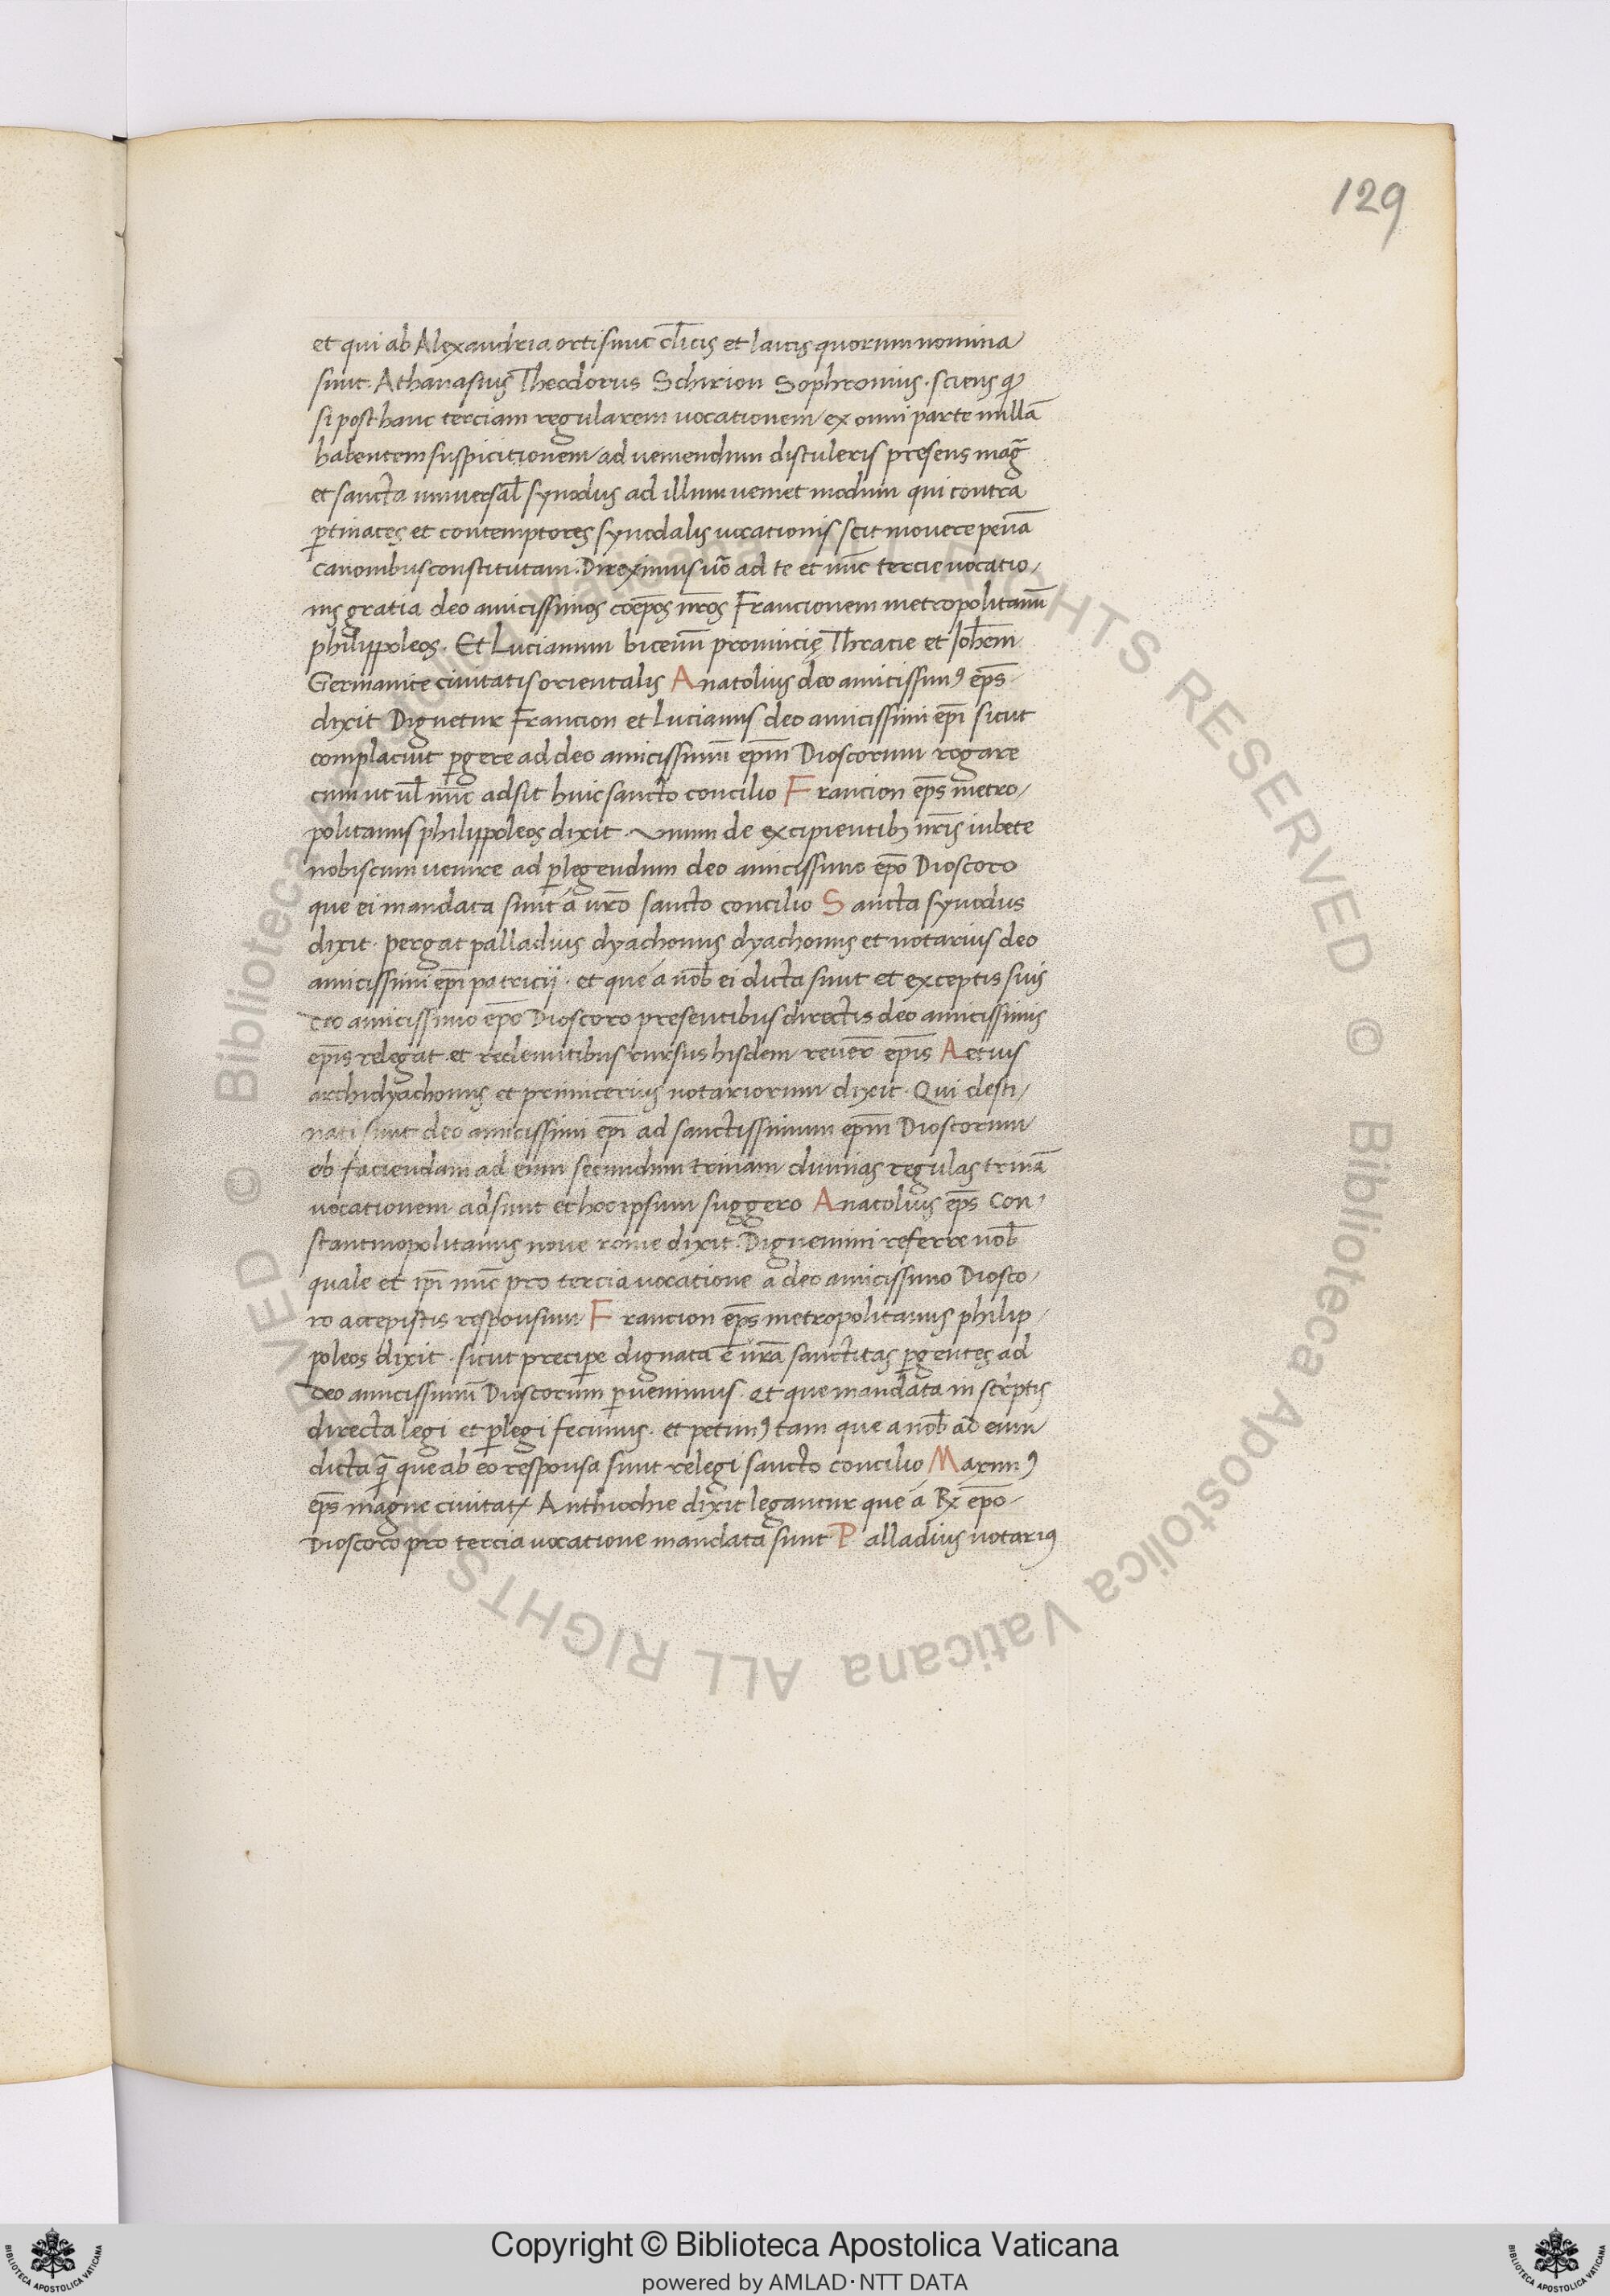 129
et qui ab Alexandria orti sunt cl̄icis et laicis quorum nomina
sunt. Athanasius Theodorus Schirion Sophronius. sciens qꝫ
si post hanc terciam regularem uocationem ex omni parte nullā
habentem suspicitionem ad ueniendum distuleris presens mag̃
et sancta uniuersal̄ synodus ad illum ueniet modum qui contra
ꝑtinaces et contemptores synodalis uocationis scit mouere penā
canonibus constitutam. Direximus ũo ad te et nūc tercie uocatio/
nis gratia deo amicissimos coēpos nr̄os Francionem metropolitanū
philippoleos. Et Lucianum bicenū prouincię Thracie et Joh̄em
Germanite ciuitatis orientalis Anatolius deo amicissimꝰ ep̄s
dixit Dignetur Francion et Lucianus deo amicissimi ep̄i sicut
complacuit ꝑgere ad deo amicissimū ep̄m Dioscorum rogare
eum ut ul̄ nūc adsit huic sancto concilio Francion ep̄s metro/
politanus philippoleos dixit. Unum de excipientibꝫ nr̄is iubete
nobiscum uenire ad ꝑlegendum deo amicissimo ep̄o Dioscoro
que ei mandata sunt á ur̄o sancto concilio Sancta synodus
dixit. pergat palladius dyachonus dyachonus et notarius deo
amicissimi ep̄i patricij. et que á nob̄ ei dicta sunt et exceptis suis
deo amicissimo ep̄o Dioscoro presentibus directis deo amicissimis
ep̄is relegat et redeuntibus rursus hisdem reuer̄ ep̄is Aetius
archidyachonus et primicerius notariorum dixit. Qui desti/
nati sunt deo amicissimi ep̄i ad sanctissimum ep̄m Dioscorum
ob faciendam ad eum secundum trinam diuinas regulas trinā
uocationem adsunt et hoc ipsum suggero Anatolius ep̄s Con/
stantinopolitanus noue rome dixit. Dignemini referre nob̄
quale et ip̄i nūc pro tercia uocatione a deo amicissimo Diosco/
ro accepistis responsum Francion ep̄s metropolitanus philip/
poleos dixit. sicut precipe dignata ē ur̄a sanctitas ꝑgentes ad
deo amicissimū Dioscorum ꝑuenimus. Et que mandata in scriptis
directa legi et ꝑlegi fecimus. et petimꝰ tam que a nob̄ ad eum
dicta q̄ que ab eo responsa sunt relegi sancto concilio Maximꝰ
ep̄s magne ciuitatꝭ Anthiochie dixit legantur que á ℞ ep̄o
Dioscoro pro tercia uocatione mandata sunt Palladius notariꝰ
© Biblioteca Apostolica Vaticana ALL RIGHTS RESERVED © Biblioteca Apostolica Vaticana ALL RIGHTS RESERVED
Copyright © Biblioteca Apostolica Vaticana
powered by AMLAD·NTT DATA
BIBLIOTECA APOSTOLICA VATICANA
BIBLIOTECA APOSTOLICA VATICANA